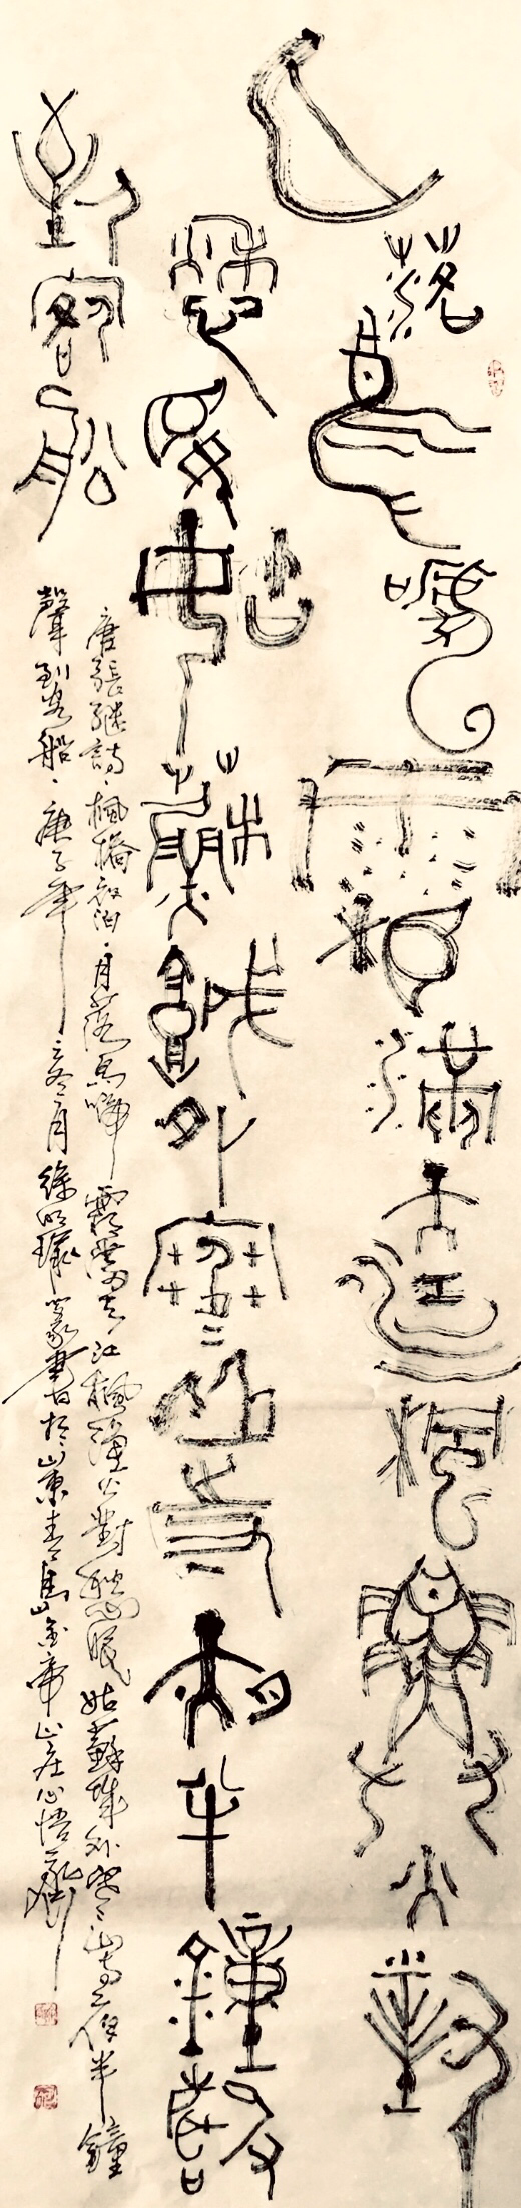 月落烏啼霜滿天江楓漁火對
愁眠姑蘇城外寒山寺夜半鐘聲
到客船
唐張繼詩楓橋夜泊月落烏啼霜滿天江楓漁火對愁眠姑蘇城外寒山寺夜半鐘
聲到客船庚子年冬月徐明篆書於山東青島金帝山莊心悟